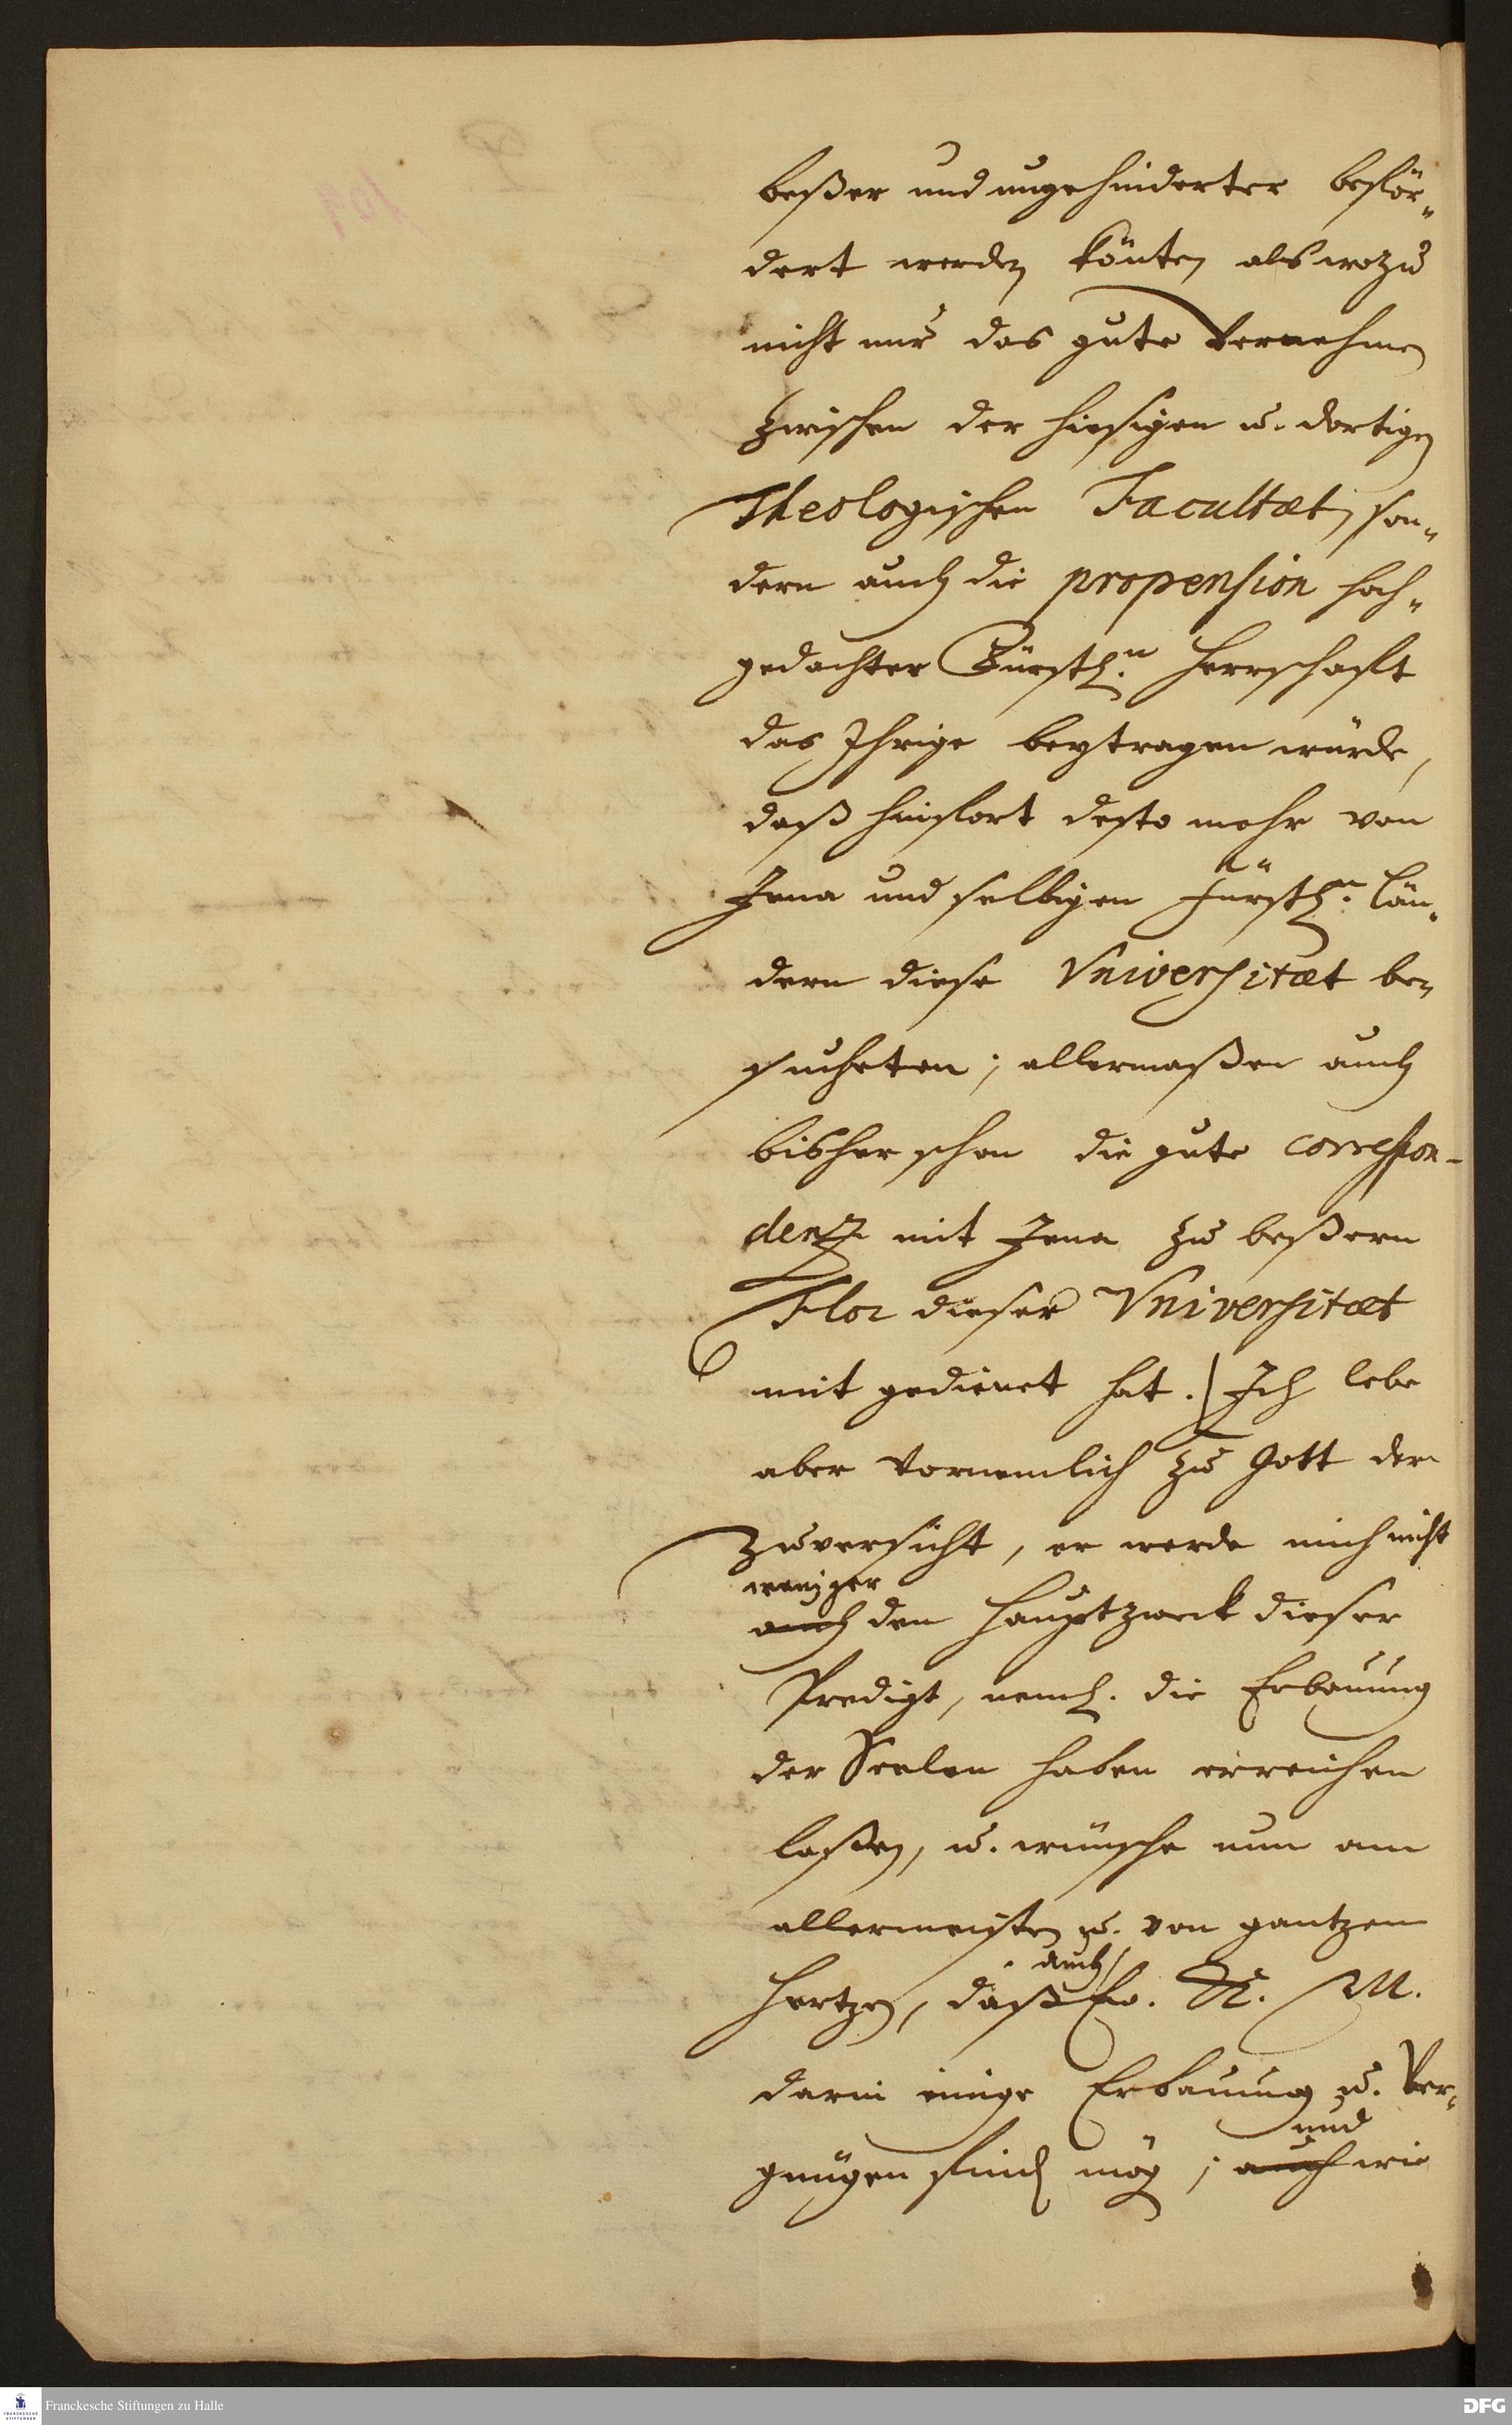 beßer und ungehinderter beför„
dert werden könten als wozu
nicht nur das gute Vernehmen
zwischen der hiesigen u. dortigen
Theologischen Facultæt, son„
dern auch die propension hoch„
gedachter Fürstl.n Herrschafft
das Ihrige beytragen würde,
daß hinfort desto mehr von
Jena und selbigen Fürstl.n Län„
dern diese Vniversitæt be„
sucheten; allermaßen auch
bisher schon die gute correspon-
dentz mit Jena zu beßern
Flor dieser Vniversitæt
mit gedienet hat. / Ich lebe
aber vornemlich zu Gott der
Zuversicht, er werde mich nicht
weniger
auch den Hauptzweck dieser
Predigt, neml. die Erbauung
der Seelen haben erreichen
laßen, u. wünsche nun am
allermeisten u. von gantzem
auch
Hertzen, daß Ew. K. M.
darin einige Erbauung u. Ver„
und
gnügen finden mög; auch wie
Franckesche Stiftungen zu Halle
DFG